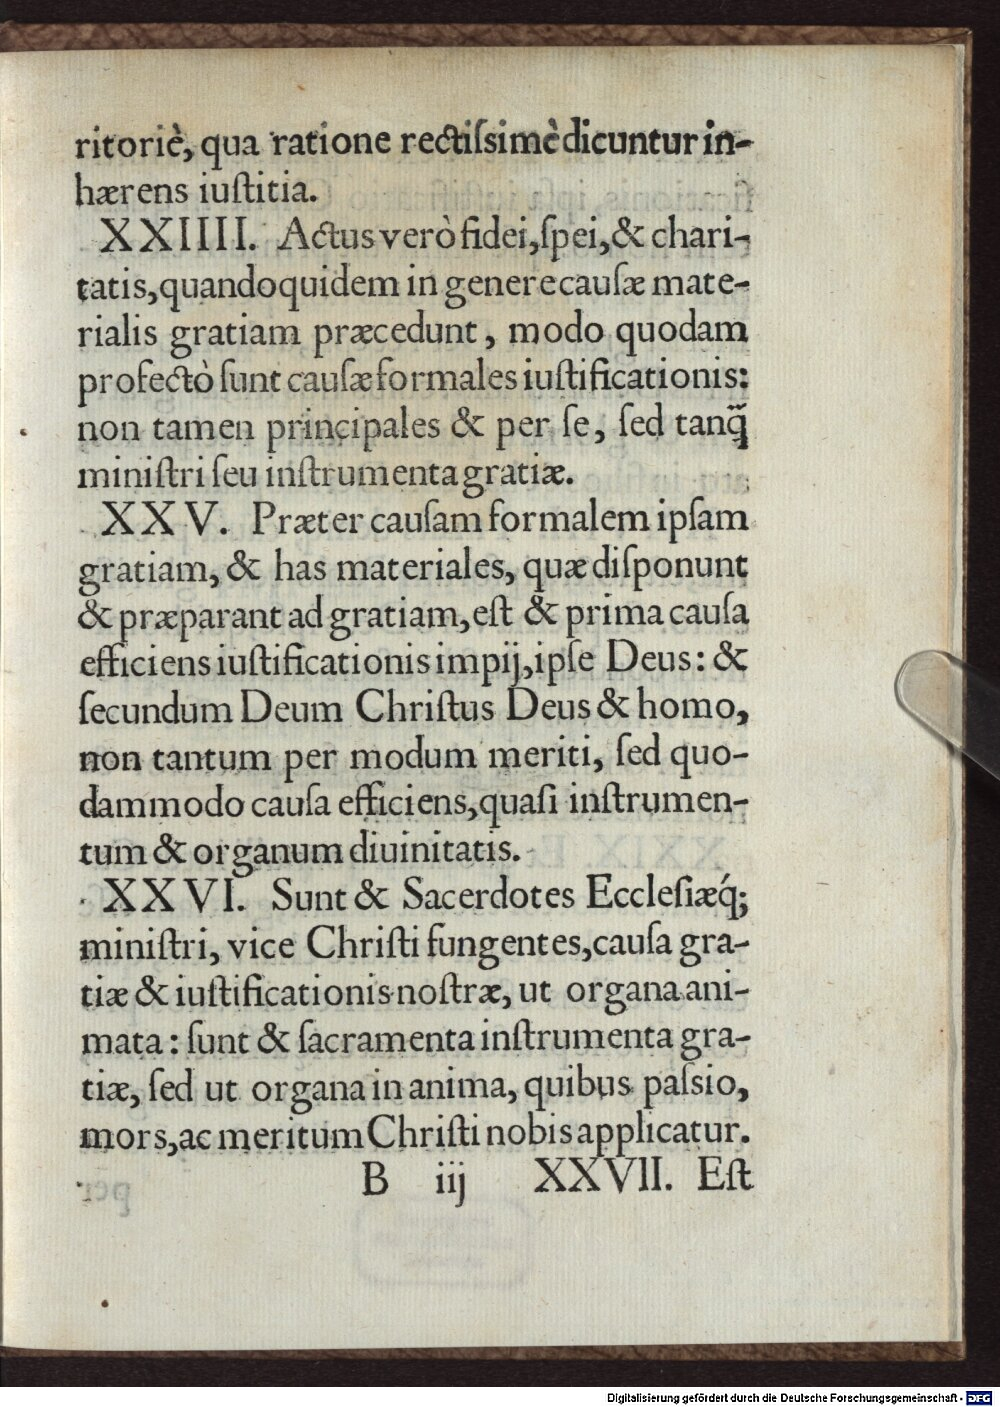 ritoriè, qua ratione rectiſsimè dicuntur in-
hærens iuſtitia.
XXIIII. Actus verò fidei, ſpei, & chari-
tatis, quandoquidem in genere cauſæ mate-
rialis gratiam præcedunt, modo quodam
profectò ſunt cauſæ formales iuſtificationis:
non tamen principales & per ſe, ſed tanq̃
miniſtri ſeu inſtrumenta gratiæ.
XXV. Præter cauſam formalem ipſam
gratiam, & has materiales, quæ diſponunt
& præparant ad gratiam, eſt & prima cauſa
efficiens iuſtificationis impij, ipſe Deus: &
ſecundum Deum Chriſtus Deus & homo,
non tantum per modum meriti, ſed quo-
dammodo cauſa efficiens, quaſi inſtrumen-
tum & organum diuinitatis.
XXVI. Sunt & Sacerdotes Eccleſiæq́;
miniſtri, vice Chriſti fungentes, cauſa gra-
tiæ & iuſtificationis noſtræ, ut organa ani-
mata: ſunt & ſacramenta inſtrumenta gra-
tiæ, ſed ut organa in anima, quibus paſsio,
mors, ac meritum Chriſti nobis applicatur.
B iij XXVII. Eſt
Digitalisierung gefördert durch die Deutsche Forschungsgemeinschaft - DFG